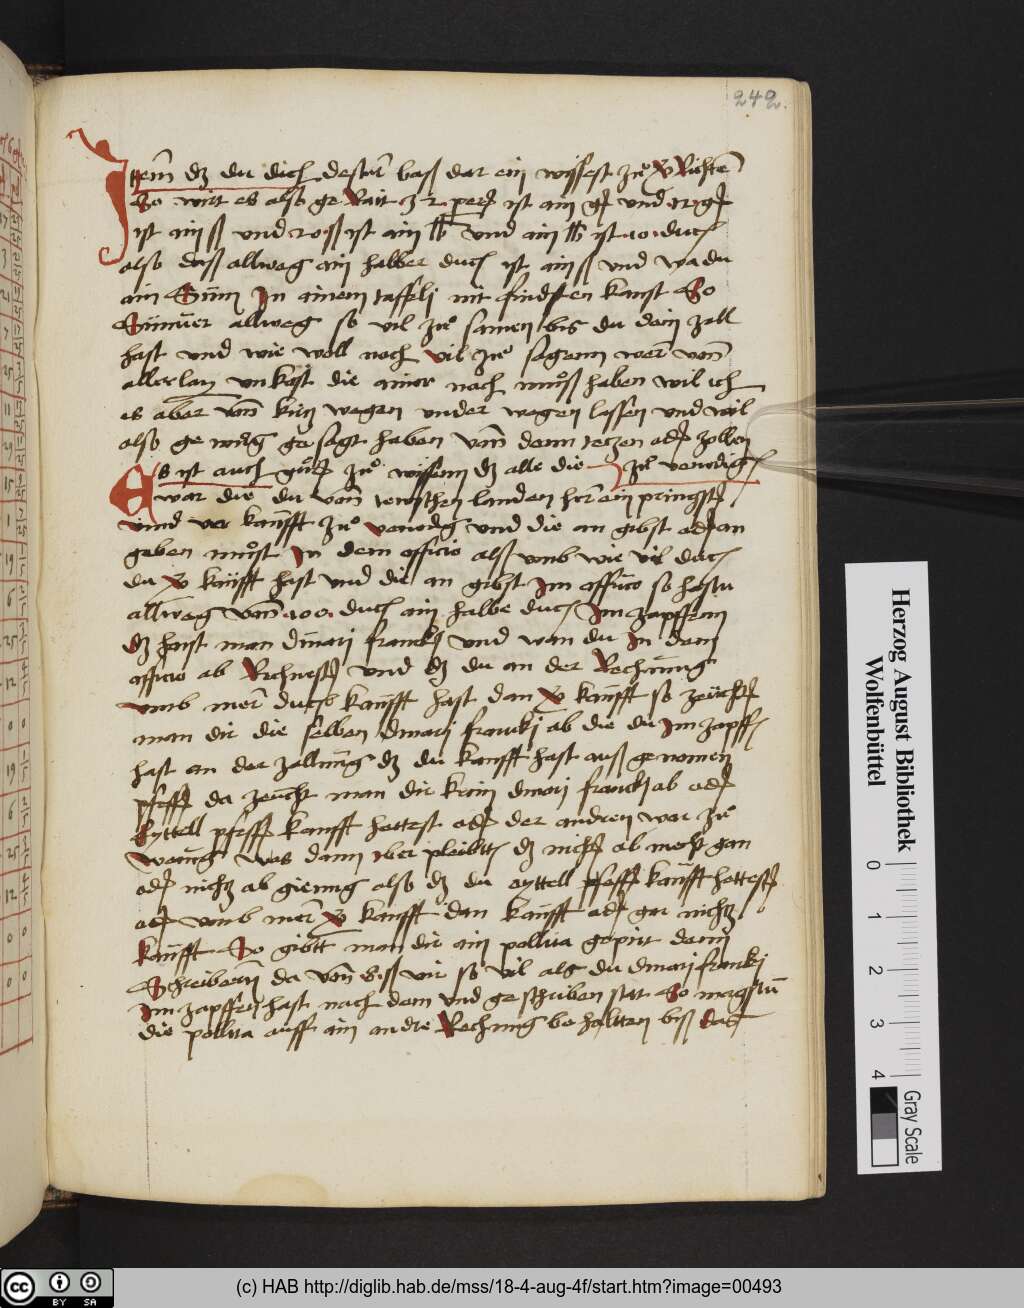 242.
Jttem dz du dich dester baß dar ein wissest zu v̈ Richten
So wirt es also ge Rait 32 per ist ain gr und 12 gr
ist ain ß und 20 ß ist ain lb und ain lb ist 10 duc
also daß allweg ain halber duc ist ain ß und wa du
ain Sum Jn ainem taffeli nit findsten kanst So
Sümier allweg so vil zu samen bis du dein zall
hast und wie woll noch vil zu sagenn wer von
allerlay unkost die ainer noch muoß haben wil ich
es aber von kurtz wegen under wegen lassen und wil
also ge nuog ge sagt haben von denn tetzen oder zollen
Es ist auch guot zu wissenn dz alle die zu venedig
war die du von tewschen landen herein pringst
unnd ver kaufft zu venedig und die an gibst oder an
geben muost Jn dem officio alß umb wie vil duc
du v̈ kaufft hast und die an gibst Jm officio so hastu
allweg von 100 duc ain halbe duc Jm zapffenn
dz haist man dinari francki und wan du Jn dem
officio ab Richnest und dz du an der Rechnung
umb mer ducb kaufft hast dan v̈ kaufft so zeücht
man dir die selben dinarj franckj ab die du Jm zapff
hast an der zallung dz du kaufft hast auß genomen
pfeffer da zeücht man dir kein dinarj franckj ab oder
Eyttell pfeffer kaufft hettest oder der andren war zu
wenig was dann über pleibtt dz nicht ab mocht gan
oder nichtz ab gieng also dz du eyttell pfeffer kaufft hettest
oder umb mer v̈ kaufft dan kaufft oder gar nichtz
kaufft So gibtt man dir ain pollita gepirt denn
Schreibern da von 8 ß vir so vil als du dinarj franckj
Jm zapffen hast nach dem und geschriben stat So magstu
die pollita auff ain andre Rechnung behaltten biß das
Herzog August Bibliothek
Wolfenbüttel
0 1 2 3 4
Gray Scale
(c) HAB http://diglib.hab.de/mss/18-4-aug-4f/start.htm?image=00493
cc BY SA